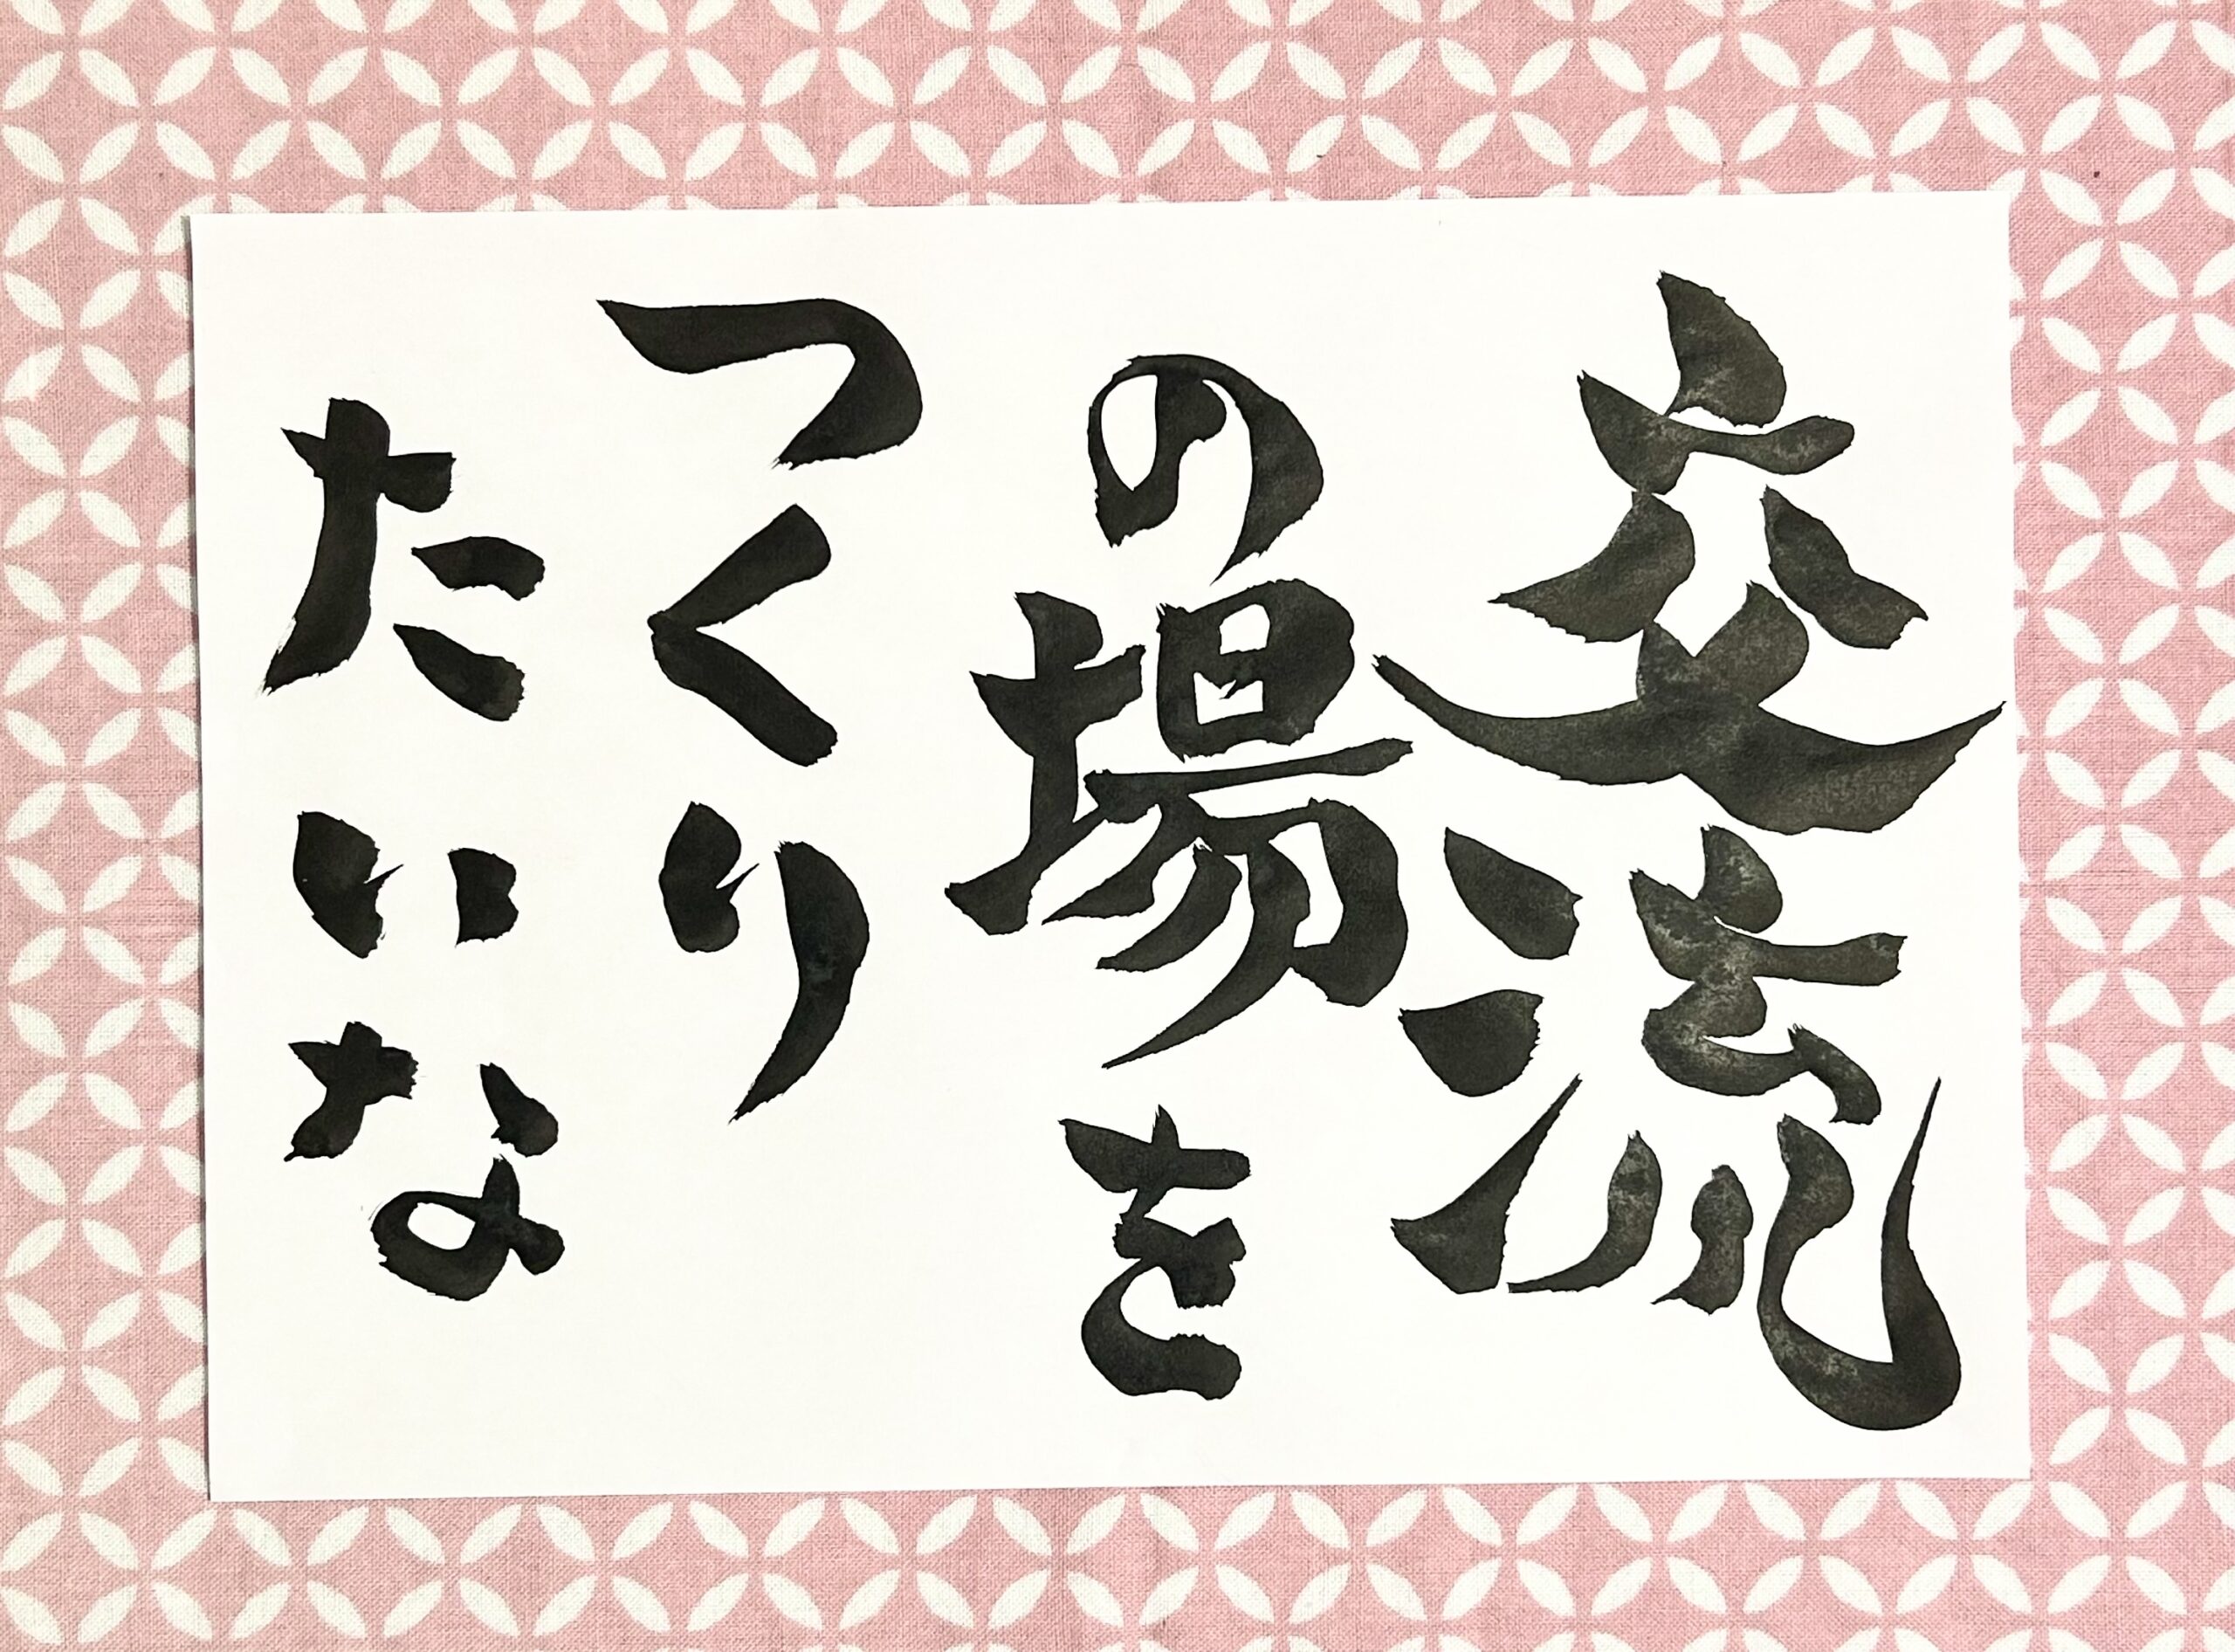 交流
の場を
つくり
たいな